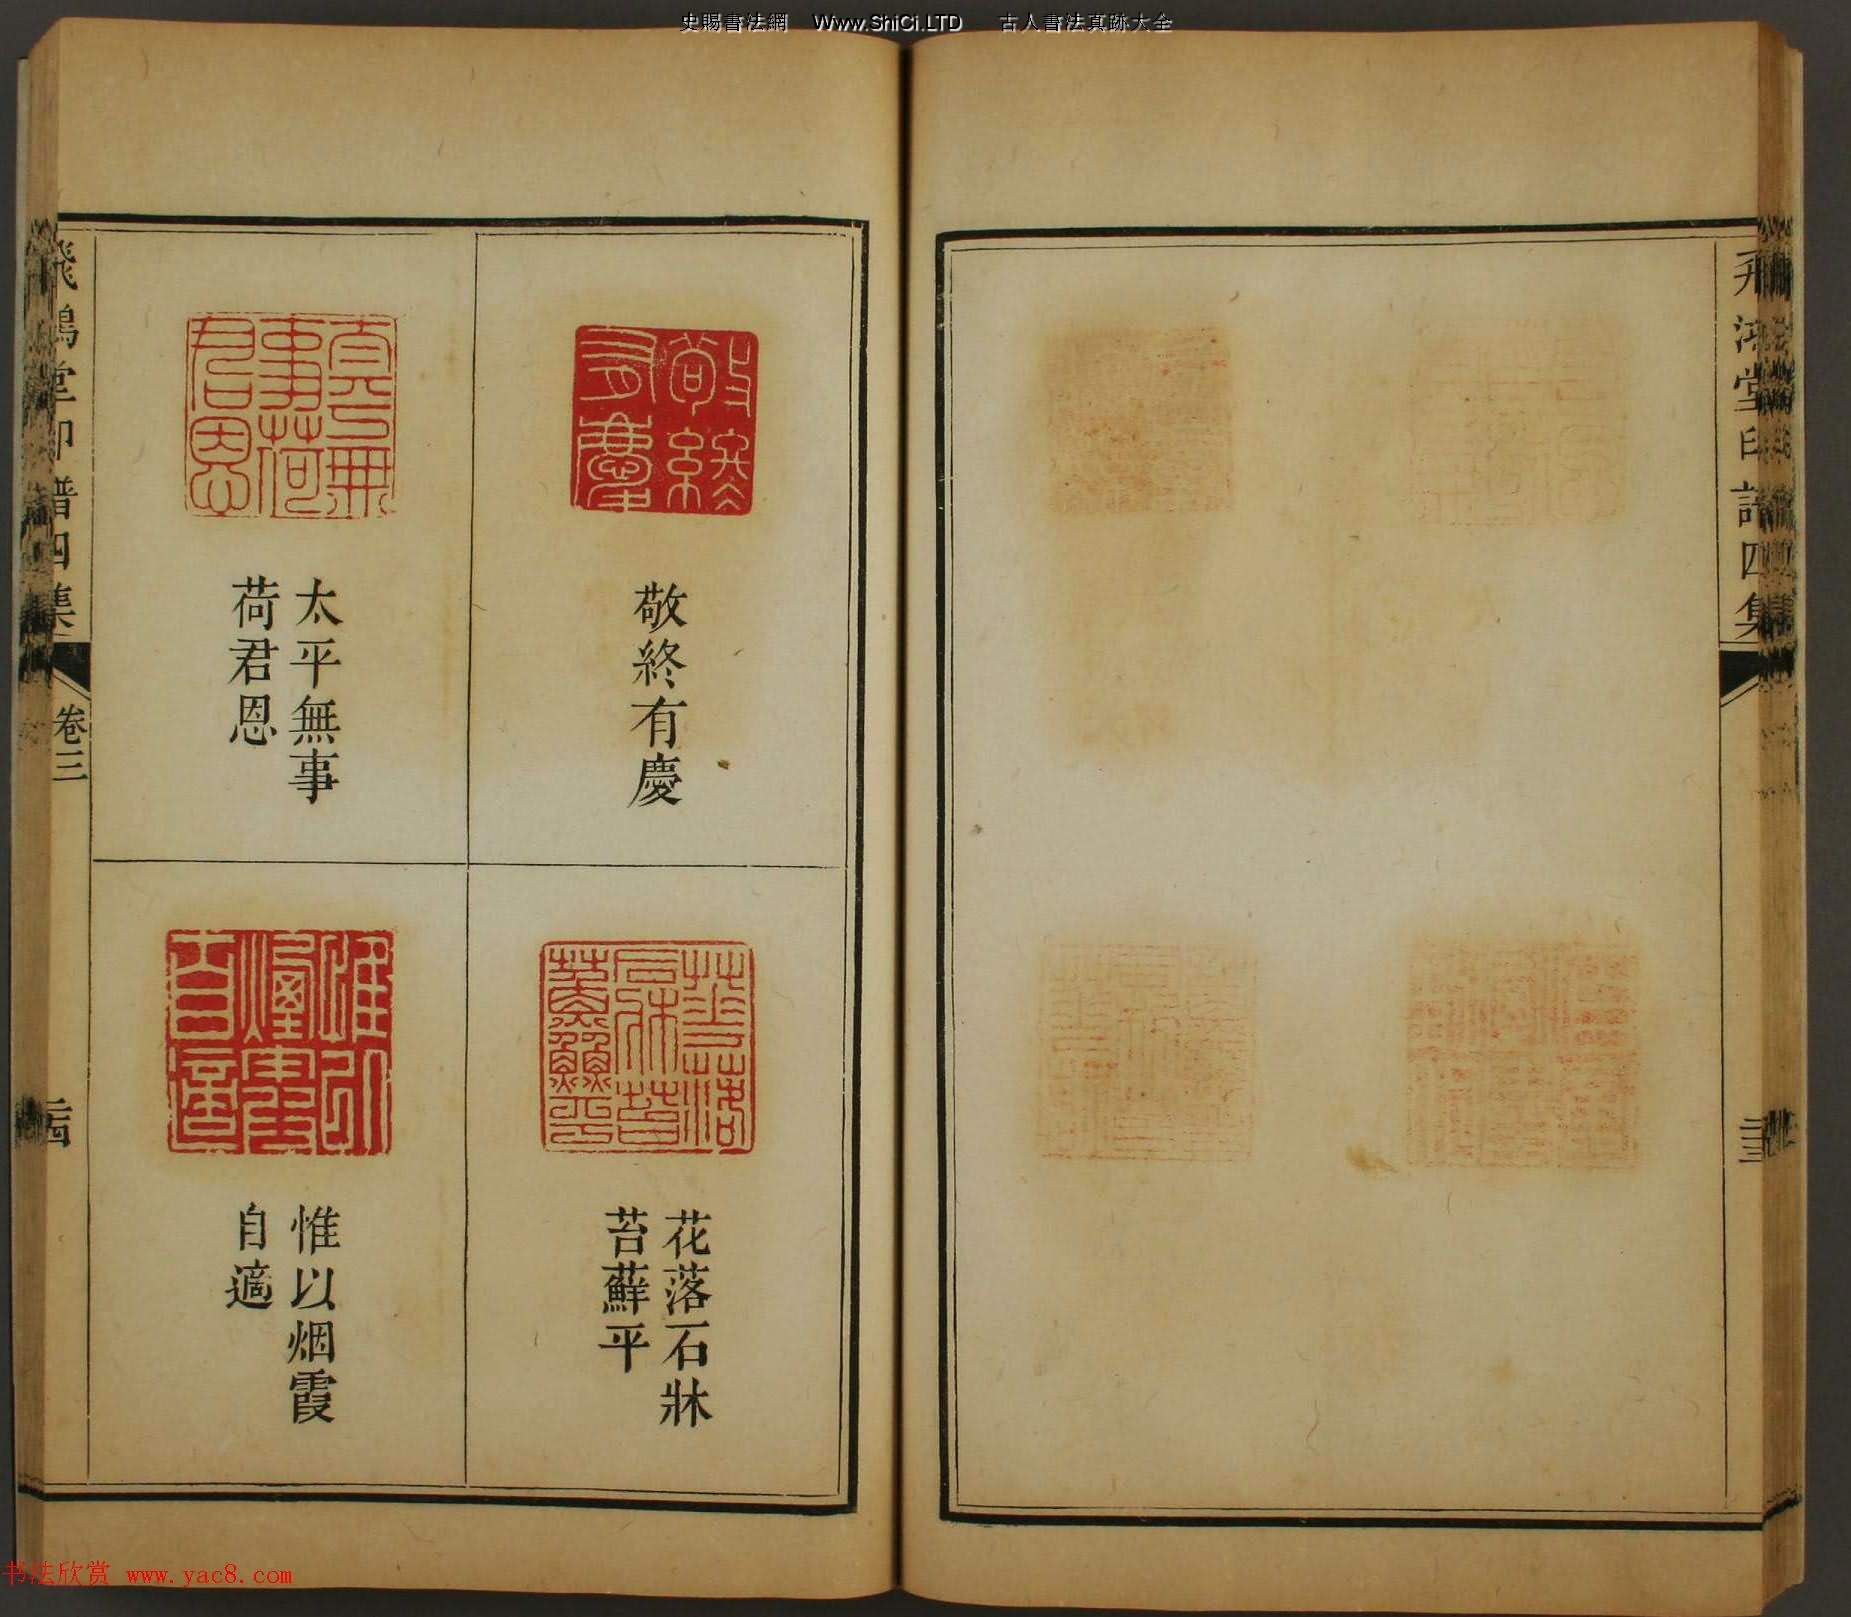 史賜書法網 Www.ShiCi.LTD 古人書法真跡大全
飛鴻堂印譜四集
二十三
敬終有慶
太平無事
荷君恩
花落石牀
苔蘚平
惟以烟霞
自適
飛鴻堂印譜四集
卷三
二十四
书法欣赏 www.yac8.com